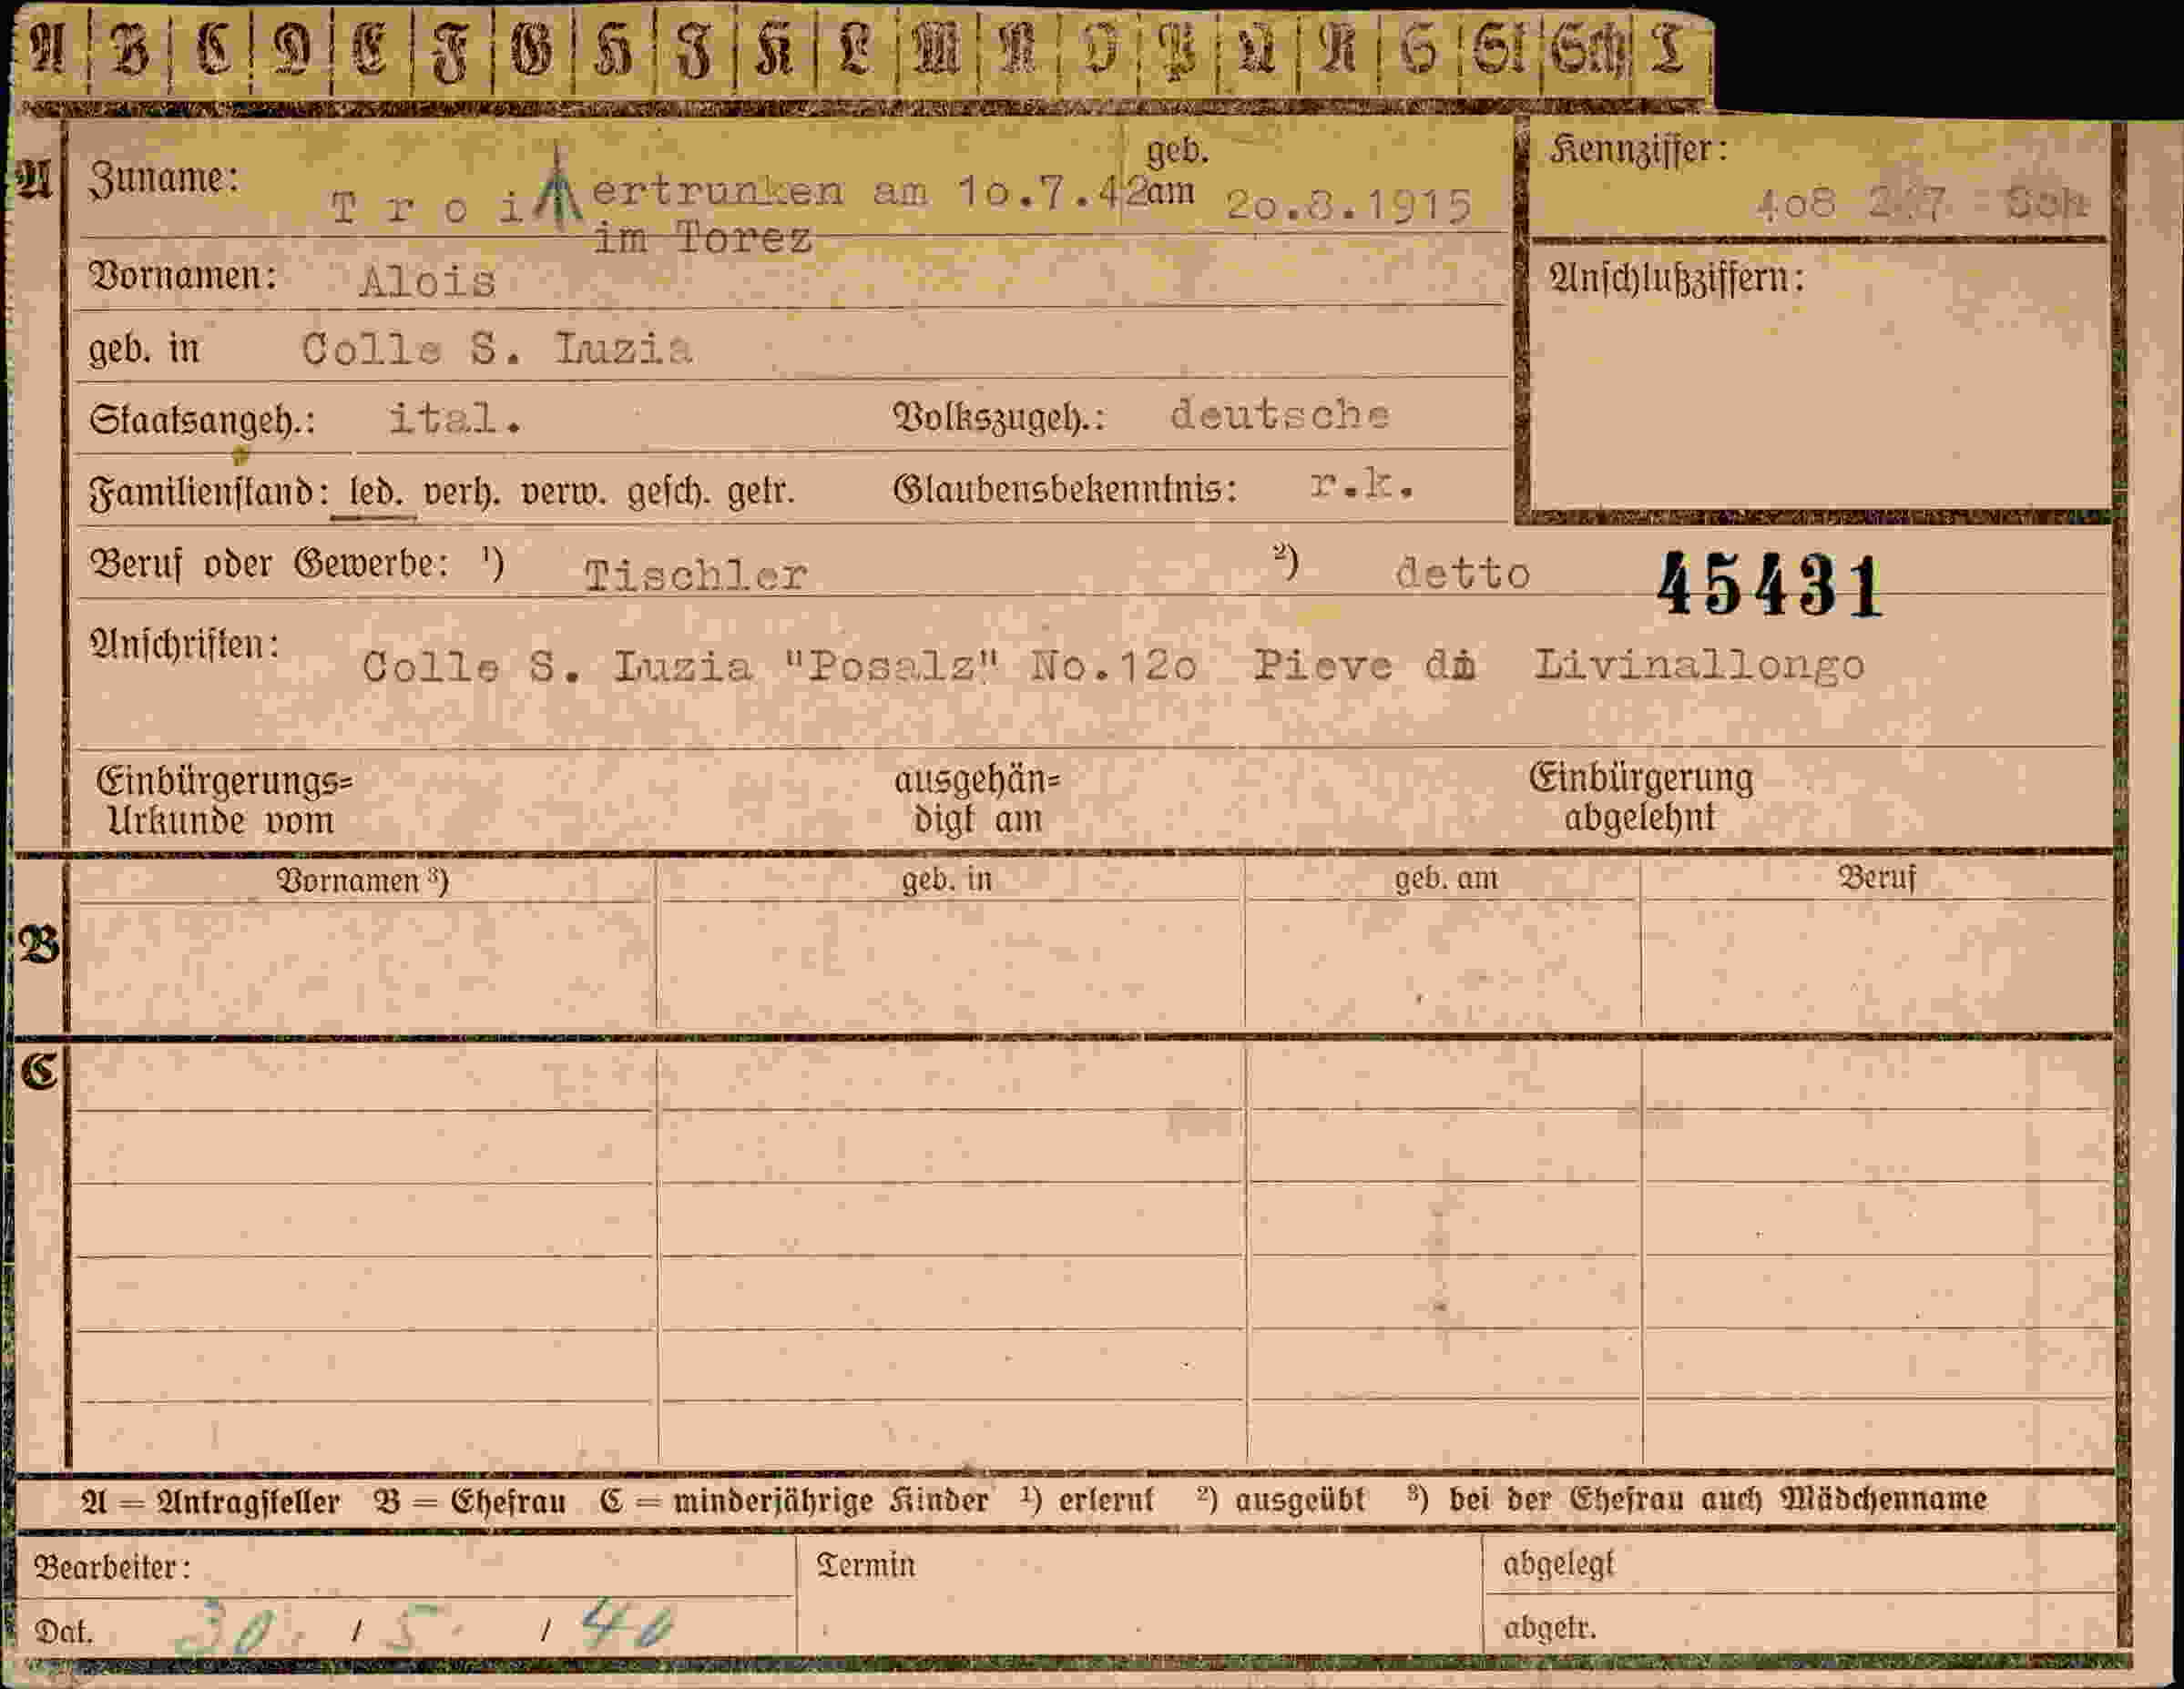 A B C D E F G H J K L M N O P Q R S St Sch T
A Zuname: Troi ertrunken am 10.7.42 geb. am 20.8.1915 Kennziffer: 408 Sch
im Torez
Vornamen: Alois Anschlußziffern:
geb. in Colle S. Luzia
Staatsangeh.: ital. Volkszugeh.: deutsche
Familienstand: led. verh. verw. gesch. getr. Glaubensbekenntnis: r.k.
Beruf oder Gewerbe: ¹) Tischler ²) detto 45431
Anschriften: Colle S. Luzia "Posalz" No.120 Pieve di Livinallongo
Einbürgerungs= ausgehän= Einbürgerung
Urkunde vom digt am abgelehnt
Vornamen ³) geb. in geb. am Beruf
B
C
A = Antragsteller B = Ehefrau C = minderjährige Kinder ¹) erlernt ²) ausgeübt ³) bei der Ehefrau auch Mädchenname
Bearbeiter: Termin abgelegt
Dat. 30. / 5. / 40 abgetr.